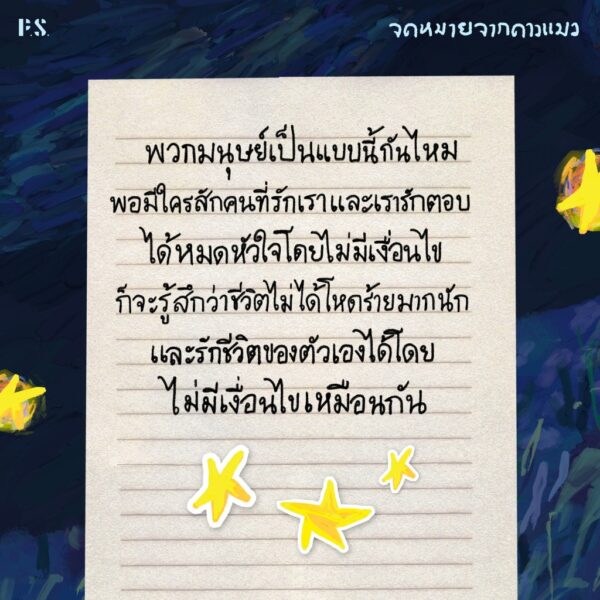 P.S.
จดหมายจากดาวแมว
พวกมนุษย์เป็นแบบนี้กันไหม
พอมีใครสักคนที่รักเราและเรารักตอบ
ได้หมดหัวใจโดยไม่มีเงื่อนไข
ก็จะรู้สึกว่าชีวิตไม่ได้โหดร้ายมากนัก
และรักชีวิตของตัวเองได้โดย
ไม่มีเงื่อนไขเหมือนกัน